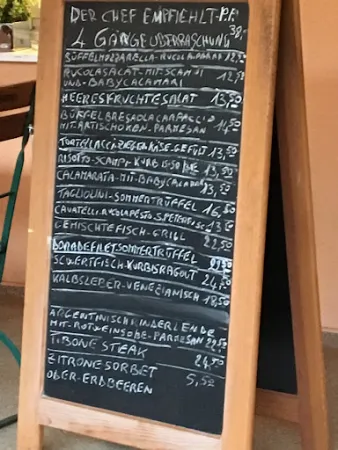 DER CHEF EMPFIEHLT-P.P.
4 GANGEÜBERRASCHUNG 39,-
BÜFFELMOZZARELLA-RUCOLA-PARMA 12,50
RUCOLASALAT-MIT-SCAMPI
UND-BABYCALAMARI 12,50
MEERESFRUCHTESALAT 13,50
BÜFFELBRESAOLACARPACCIO
MIT-ARTISCHOKEN-PARMESAN 14,50
ZIEGENKÄSE-GEFÜLT 13,50
RISOTTO-SCAMPI-KURBIS
CALAMARATA-MIT-BABYCALAMARI 13,50
TAGLIOLINI-SOMMERTRÜFFEL 16,50
CAVATELLI-RUCOLAPESTO-S.PETERFISCH
GEMISCHTEFISCH-GRILL 22,50
DORADEFILETSOMMERTRÜFFEL
SCWERTFISCH-KURBISRAGOUT
KALBSLEBER-VENEZIANISCH 18,50
ARGENTINISCHE RINDERLENDE
MIT-ROTWEINSOHE-PARMESAN
T-BONE STEAK 24,50
ZITRONESORBET 5,50
ODER-ERDBEEREN